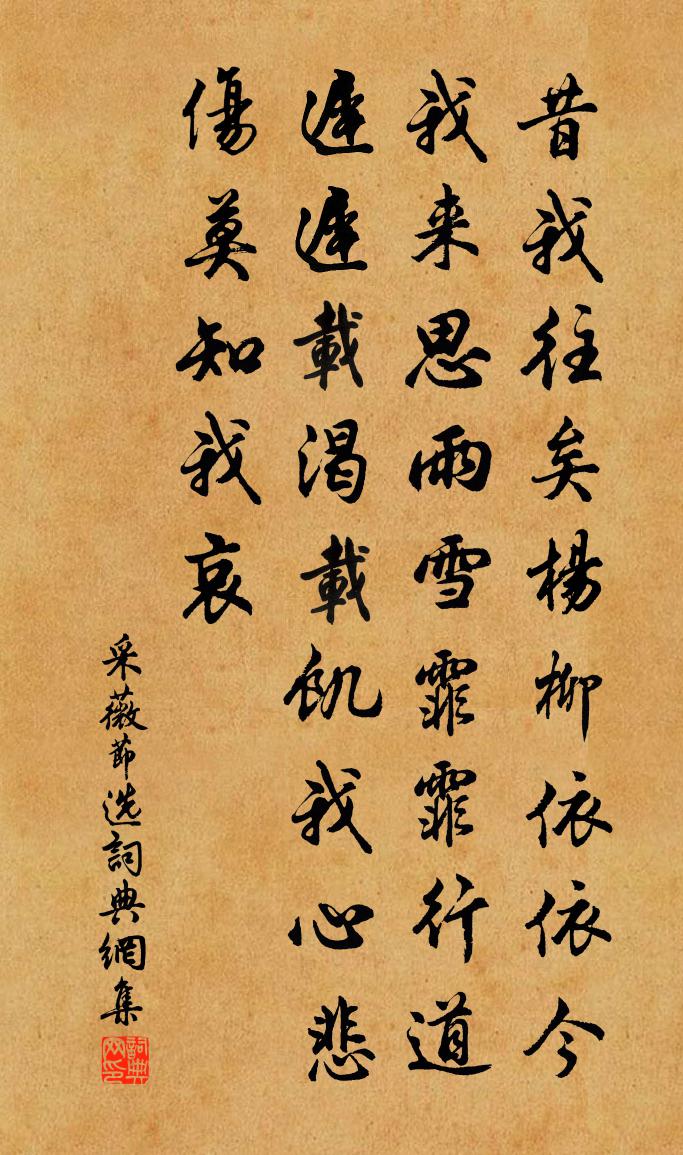 昔我往矣楊柳依依今
我来思雨雪霏霏行道
遲遲載渴載飢我心悲
傷莫知我哀
采薇節选詞典網集
詞典网印